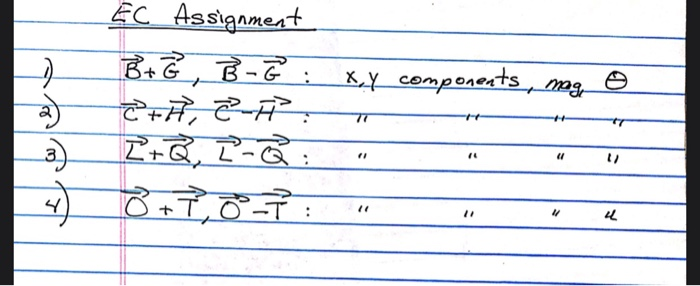 EC Assignment
1) B⃗+G⃗, B⃗-G⃗ : x,y components, mag, Θ
2) C⃗+H⃗, C⃗-H⃗ : " " " "
3) L⃗+Q⃗, L⃗-Q⃗ : " " " "
4) O⃗+T⃗, O⃗-T⃗ : " " " "